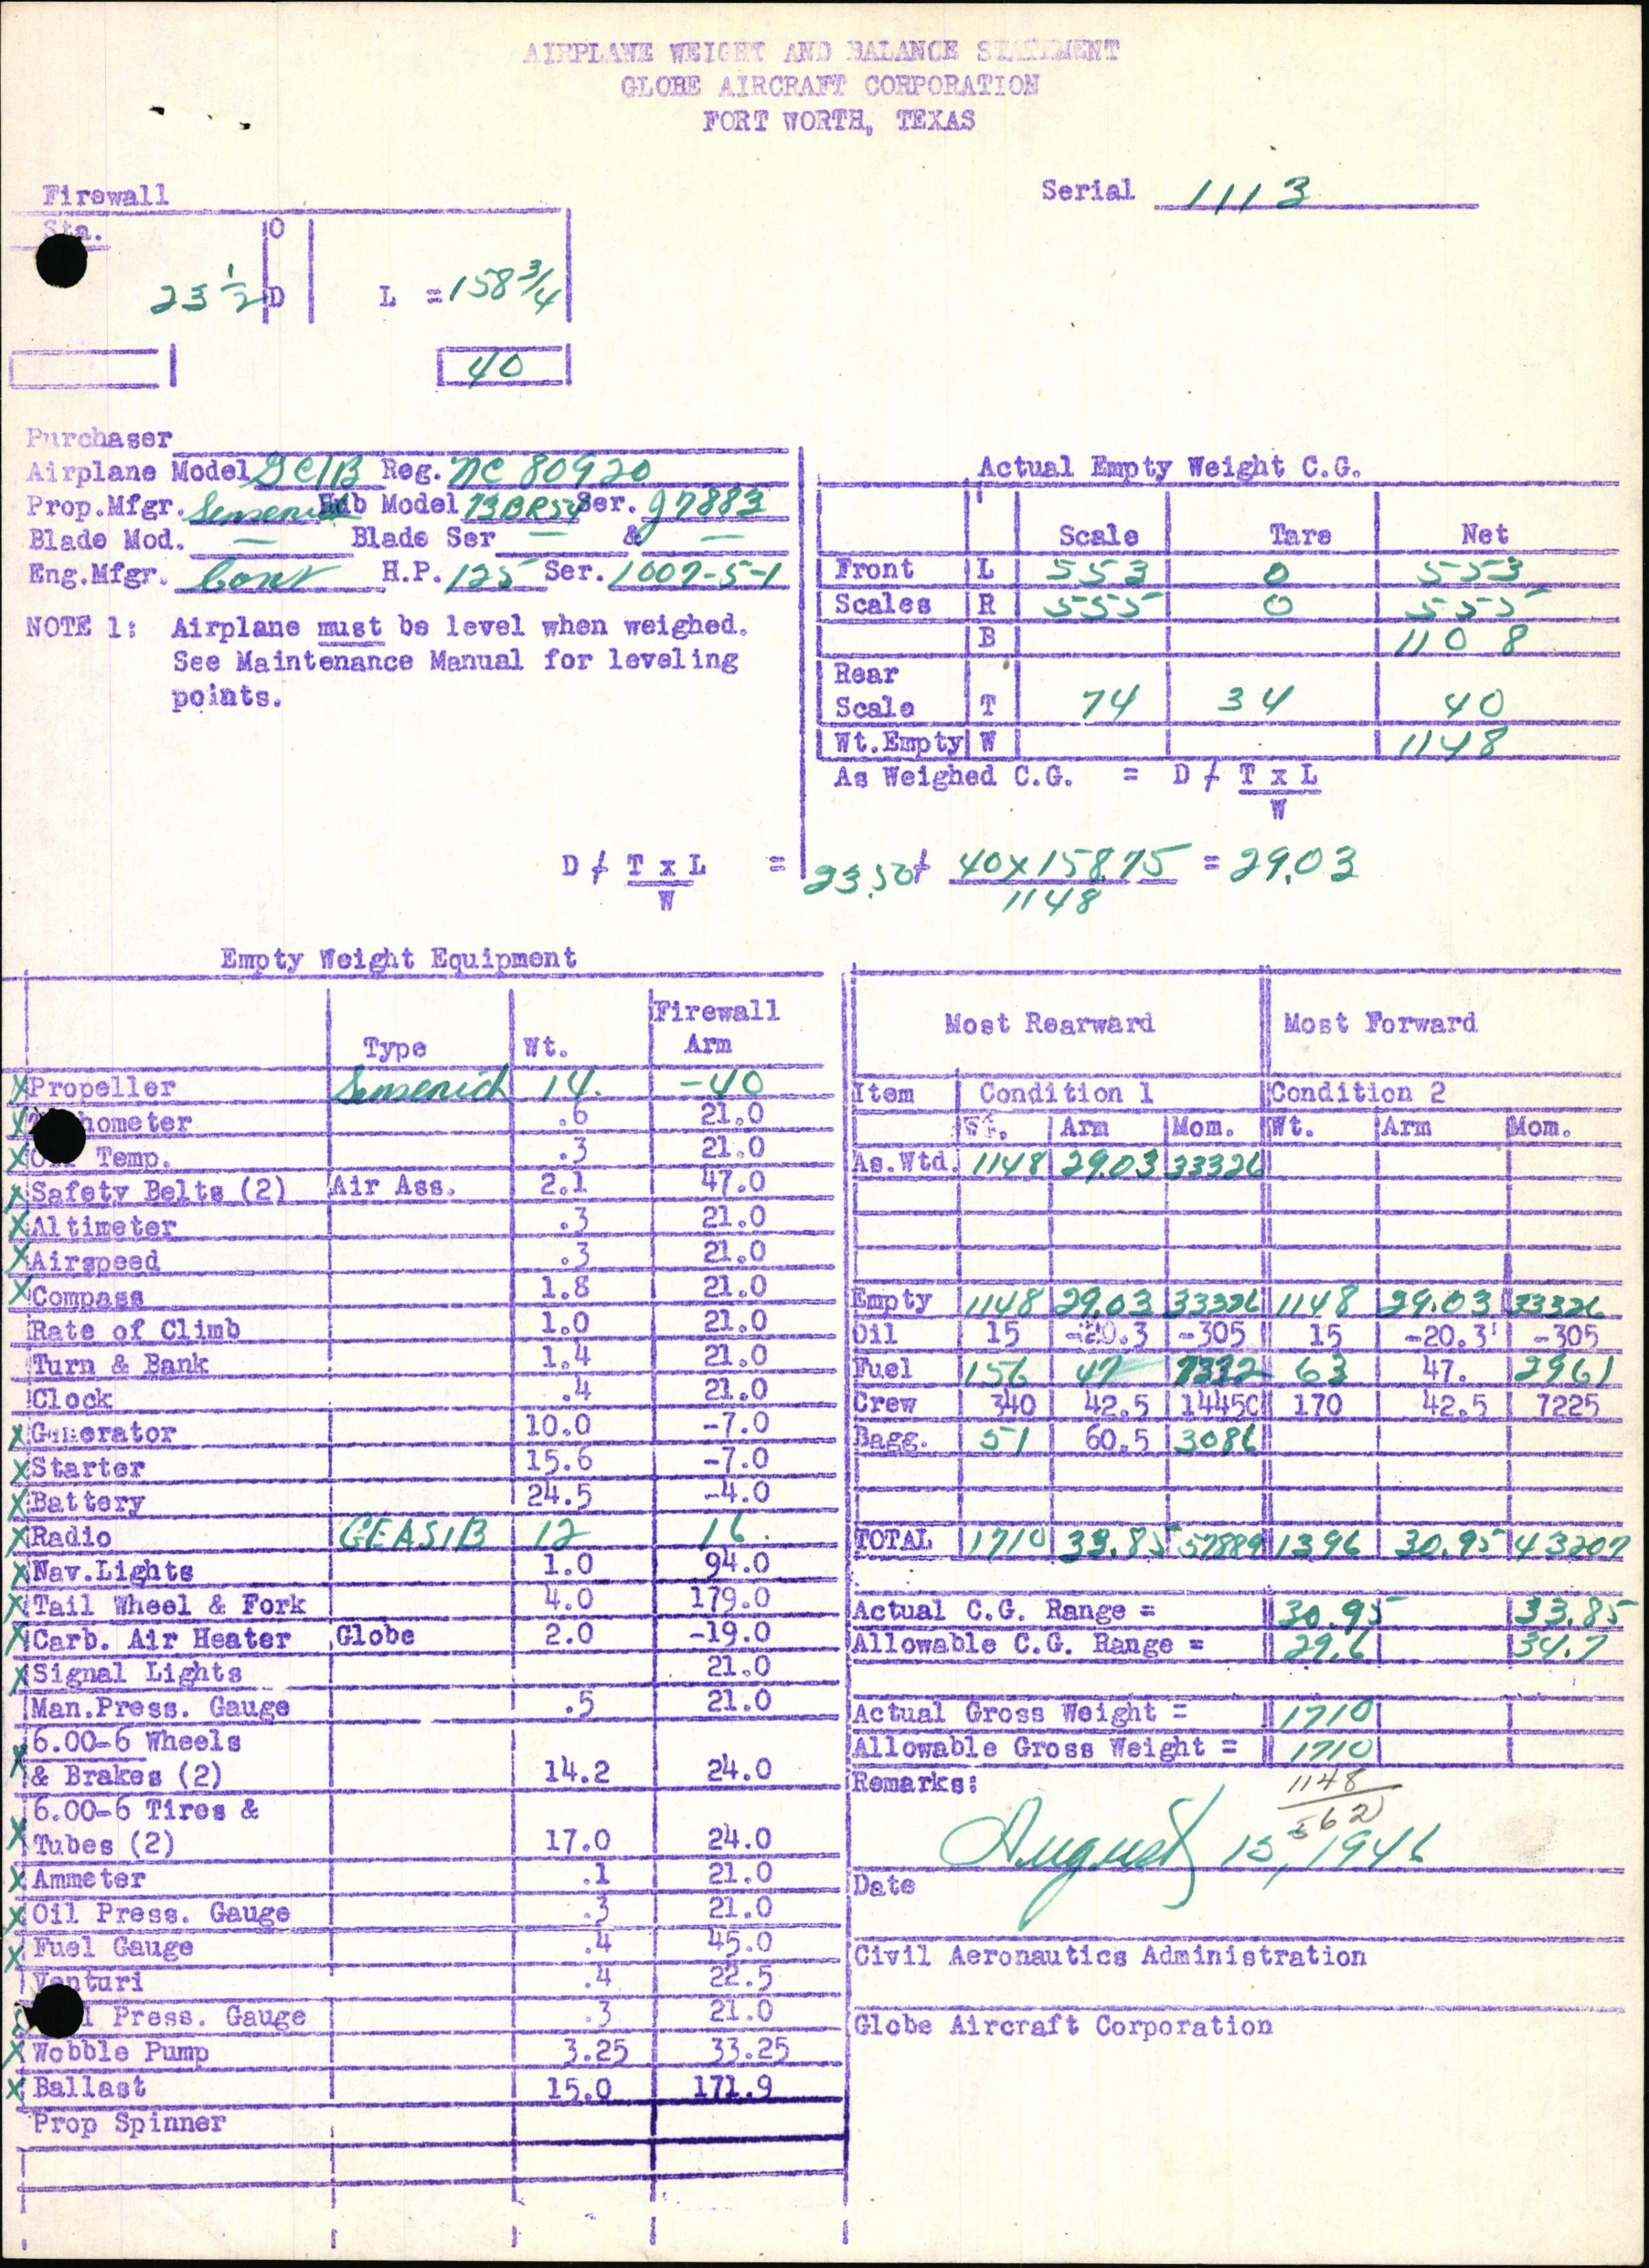 AIRPLANE WEIGHT AND BALANCE STATEMENT
GLOBE AIRCRAFT CORPORATION
FORT WORTH, TEXAS
Serial 1113
Firewall
Sta.
O
23 1/2 D L = 158 3/4
40
Purchaser
Airplane Model GC1B Reg. NC 80920
Prop.Mfgr. Sensenich Hub Model 73BR54 Ser. 97883
Blade Mod. — Blade Ser — & —
Eng.Mfgr. Cont H.P. 125 Ser. 1007-5-1
NOTE 1: Airplane must be level when weighed.
See Maintenance Manual for leveling
points.
Actual Empty Weight C.G.
Scale Tare Net
Front L 553 0 553
Scales R 555 0 555
B 1108
Rear
Scale T 74 34 40
Wt.Empty W 1148
As Weighed C.G. = D + T x L
W
D + T x L = 23.50 + 40 x 158.75 = 29.03
W 1148
Empty Weight Equipment
Type Wt. Firewall Arm
X Propeller Sensenich 14. -40
X hometer .6 21.0
X Temp. .3 21.0
X Safety Belts (2) Air Ass. 2.1 47.0
X Altimeter .3 21.0
X Airspeed .3 21.0
X Compass 1.8 21.0
Rate of Climb 1.0 21.0
Turn & Bank 1.4 21.0
Clock .4 21.0
X Generator 10.0 -7.0
X Starter 15.6 -7.0
X Battery 24.5 -4.0
X Radio GEAS1B 12 16.
X Nav.Lights 1.0 94.0
X Tail Wheel & Fork 4.0 179.0
X Carb. Air Heater Globe 2.0 -19.0
X Signal Lights 21.0
Man.Press. Gauge .5 21.0
6.00-6 Wheels
X & Brakes (2) 14.2 24.0
6.00-6 Tires &
X Tubes (2) 17.0 24.0
X Ammeter .1 21.0
X Oil Press. Gauge .3 21.0
X Fuel Gauge .4 45.0
Venturi .4 22.5
l Press. Gauge .3 21.0
X Wobble Pump 3.25 33.25
X Ballast 15.0 171.9
Prop Spinner
Most Rearward Most Forward
Item Condition 1 Condition 2
Wt. Arm Mom. Wt. Arm Mom.
As.Wtd. 1148 29.03 33326
Empty 1148 29.03 33326 1148 29.03 33326
Oil 15 -20.3 -305 15 -20.3 -305
Fuel 156 47 7332 63 47. 2961
Crew 340 42.5 14450 170 42.5 7225
Bagg. 51 60.5 3086
TOTAL 1710 33.85 57889 1396 30.95 43207
Actual C.G. Range = 30.95 33.85
Allowable C.G. Range = 29.6 34.7
Actual Gross Weight = 1710
Allowable Gross Weight = 1710
Remarks: 1148
562
August 15, 1946
Date
Civil Aeronautics Administration
Globe Aircraft Corporation